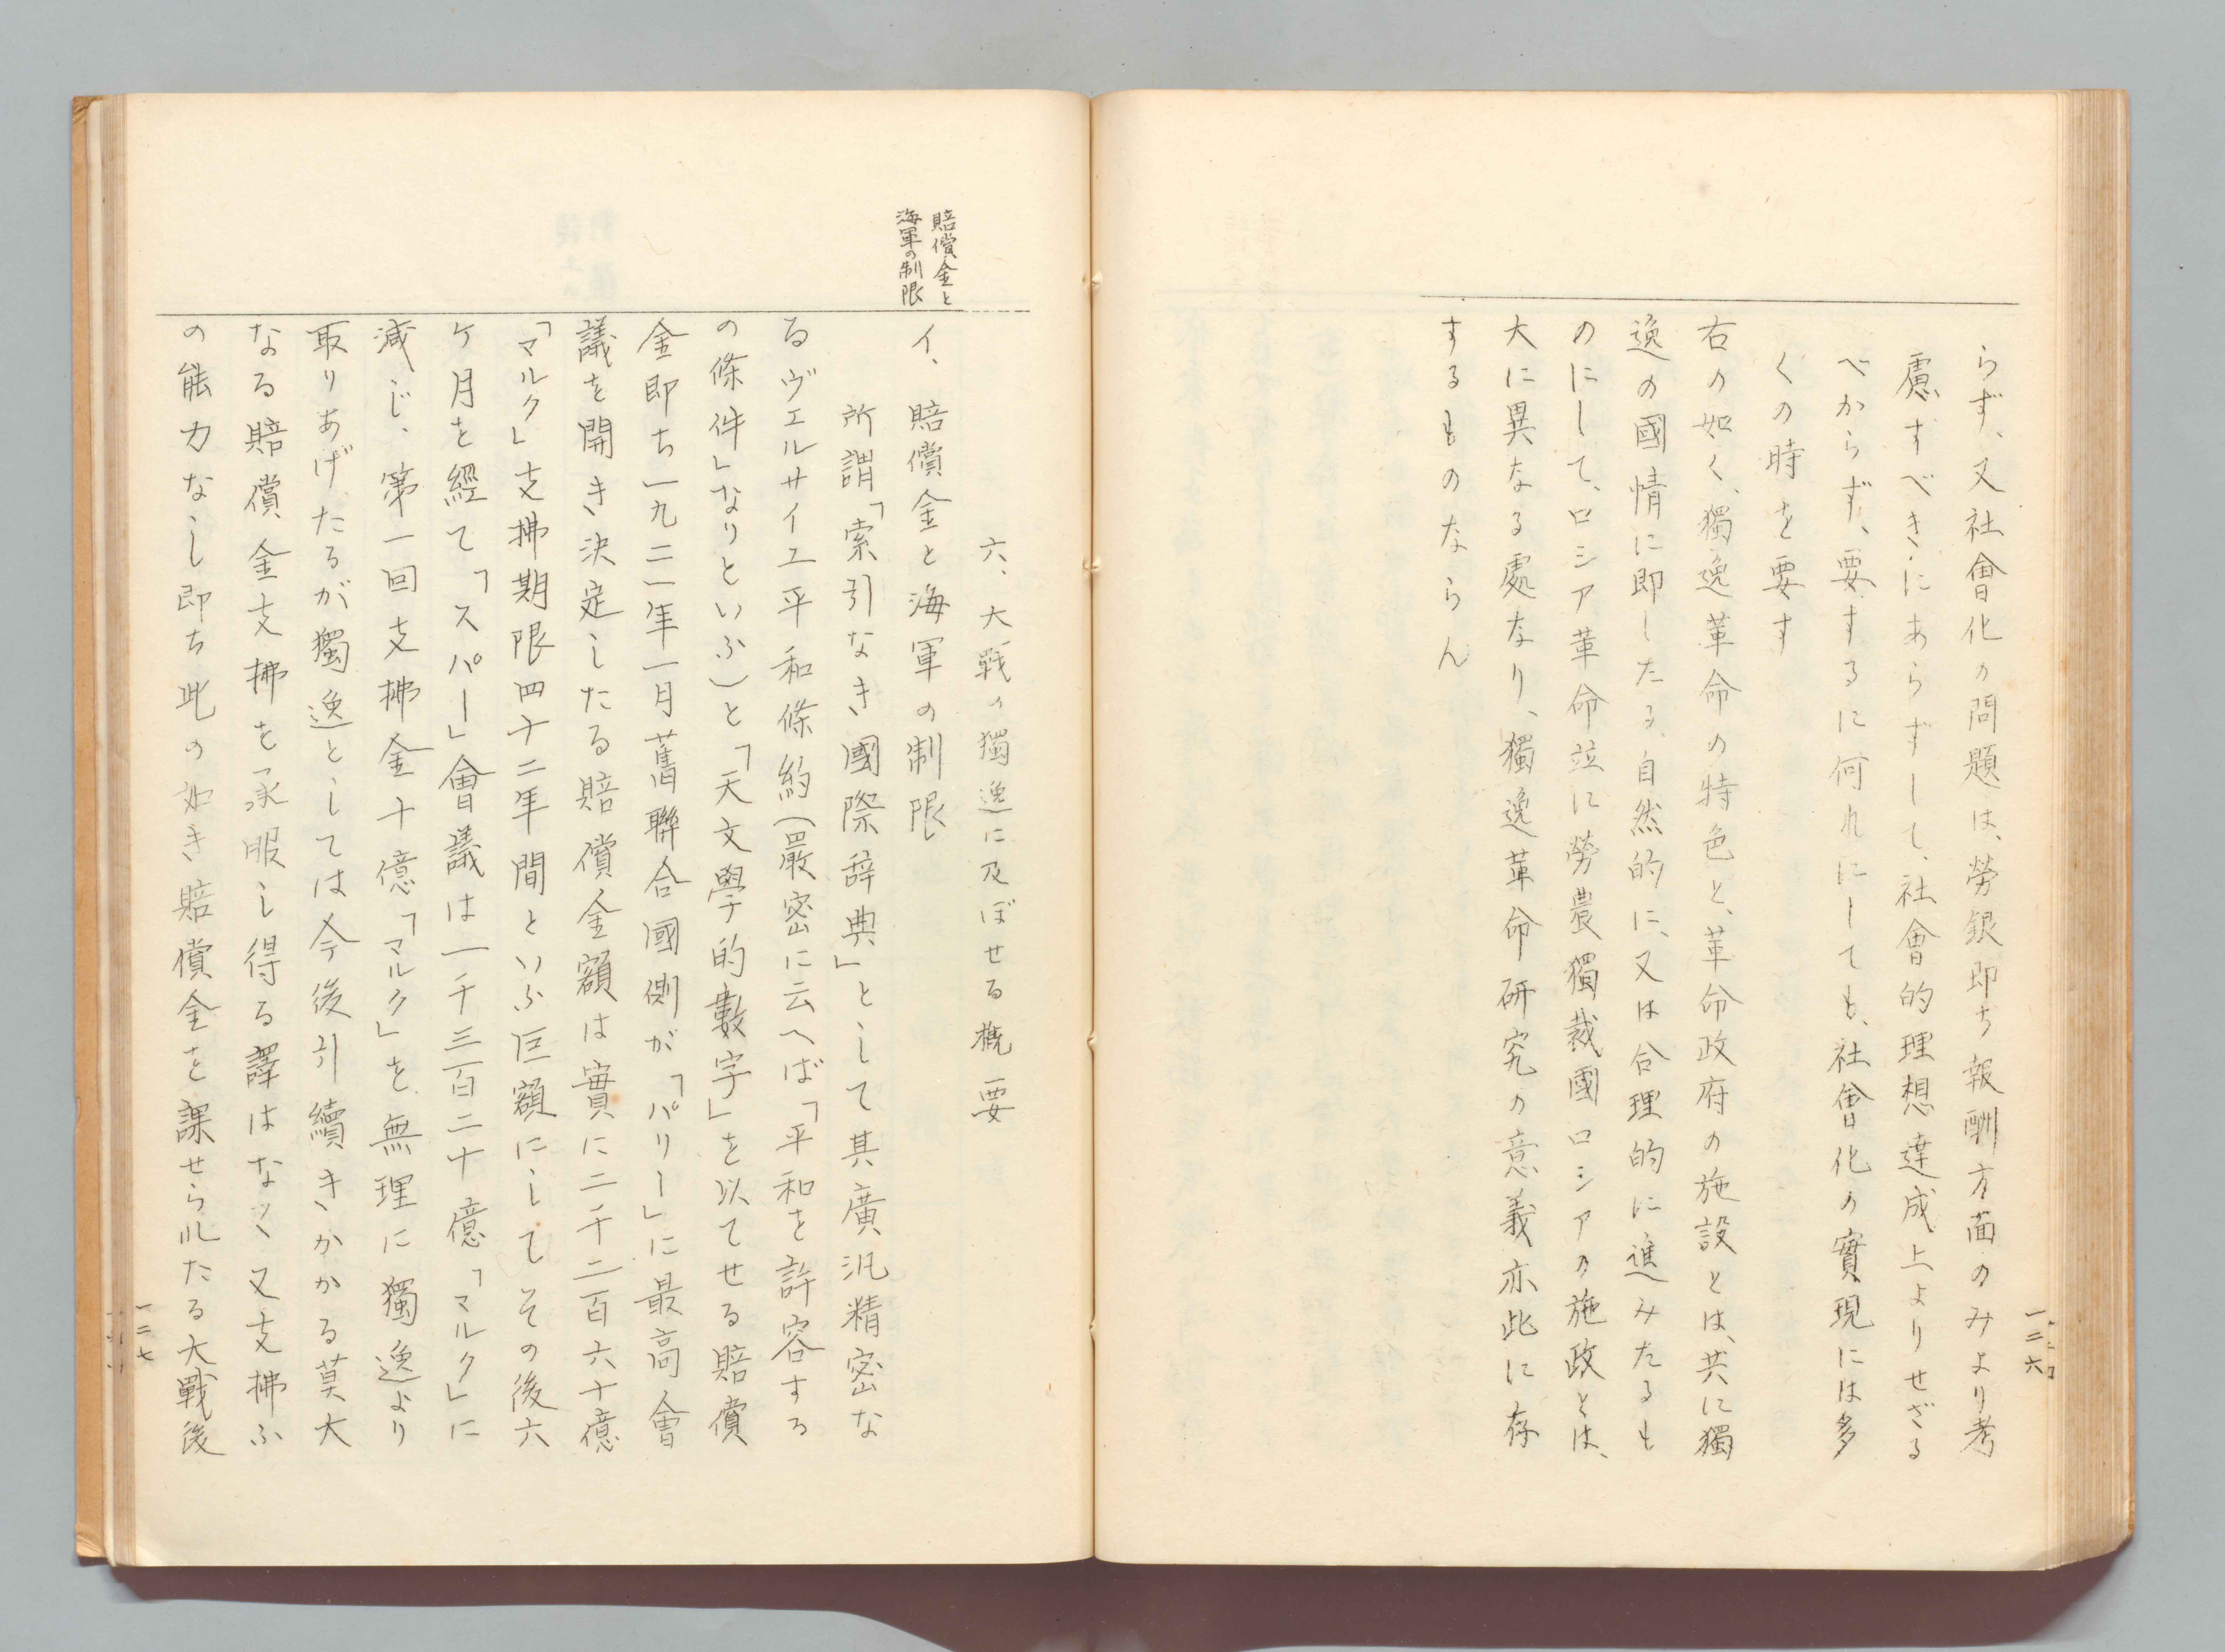 らず、又社會化の問題は、勞銀即ち報酬方面のみより考
慮すべきにあらずして、社會的理想達成上よりせざる
べからず、要するに何れにしても、社會化の實現には多
くの時を要す
右の如く、獨逸革命の特色と、革命政府の施設とは、共に獨
逸の國情に即したる、自然的に、又は合理的に進みたるも
のにして、ロシア革命並に勞農獨裁國ロシアの施政とは、
大に異なる處なり、獨逸革命研究の意義亦此に存
するものならん
一二六
賠償金と
海軍の制限
六、大戰の獨逸に及ぼせる概要
イ、賠償金と海軍の制限
所謂「索引なき國際辞典」として其廣汎精密な
るヴェルサイエ平和條約(嚴密に云へば「平和を許容する
の條件」なりといふ)と「天文學的數字」を以てせる賠償
金即ち一九二一年一月舊聯合國側が「パリー」に最高會
議を開き決定したる賠償金額は實に二千二百六十億
「マルク」支拂期限四十二年間といふ巨額にしてその後六
ケ月を經て「スパー」會議は一千三百二十億「マルク」に
減じ、第一回支拂金十億「マルク」を無理に獨逸より
取りあげたるが獨逸としては今後引續きかかる莫大
なる賠償金支拂を承服し得る譯はなく又支拂ふ
の能力なし即ち此の如き賠償金を課せられたる大戰後
一二七